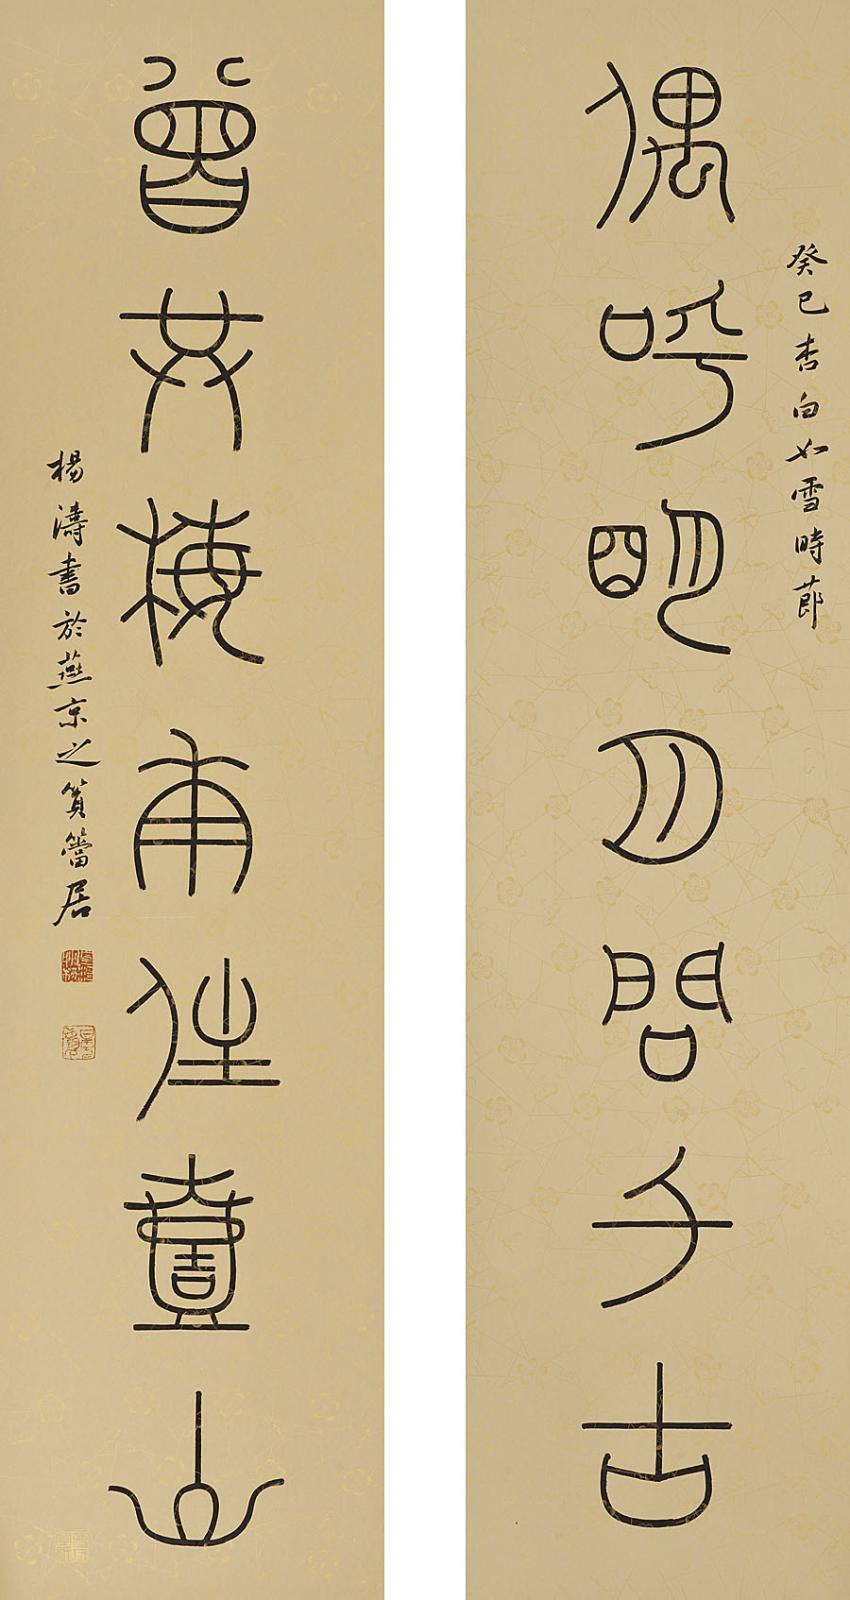 癸巳杏白如雪時節
偶呼明月問千古
曾共梅華住壹山
楊濤書於燕京之篔簹居